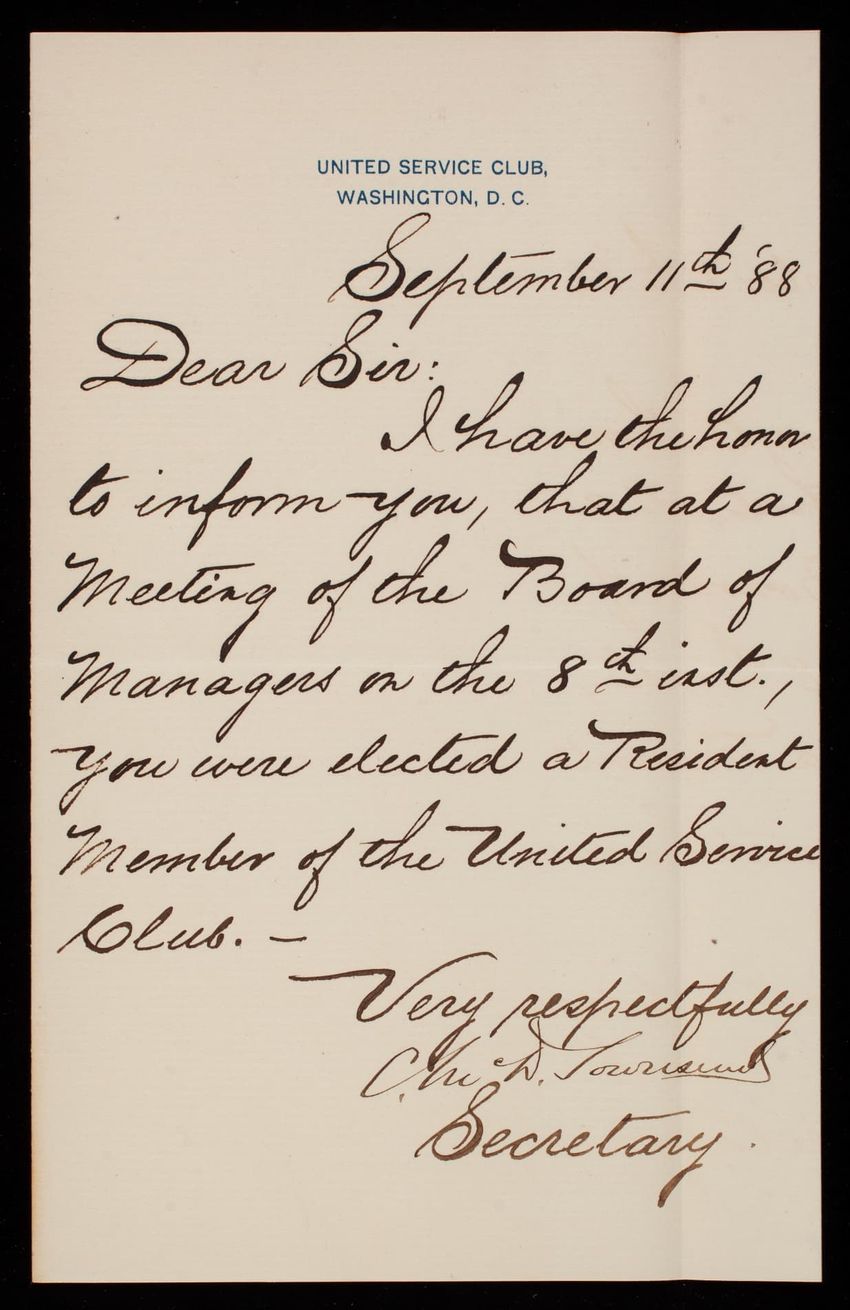 UNITED SERVICE CLUB,
WASHINGTON, D. C.
September 11th '88
Dear Sir:
I have the honor
to inform you, that at a
Meeting of the Board of
Managers on the 8th inst.,
you were elected a Resident
Member of the United Service
Club. —
Very respectfully
D. Townsend
Secretary.